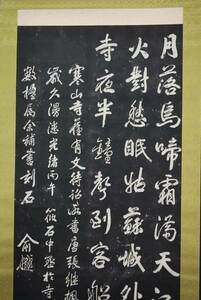 月落烏啼霜滿天
火對愁眠姑蘇城外
寺夜半鐘聲到客船
寒山寺舊有文待詔所書唐張繼楓
歲久漫漶光緒丙午筱石中丞於寺
數楹屬余補書刻石
俞樾